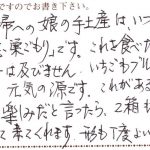 ですのでお書き下さい。
帰への娘の手土産は、いつ
巣ごもり」です。これを食べた
ーは及びません
いちごもプル
元気の源です。これがある
楽しみだと言ったら、2箱も
て来てくれます。形も丁度よい